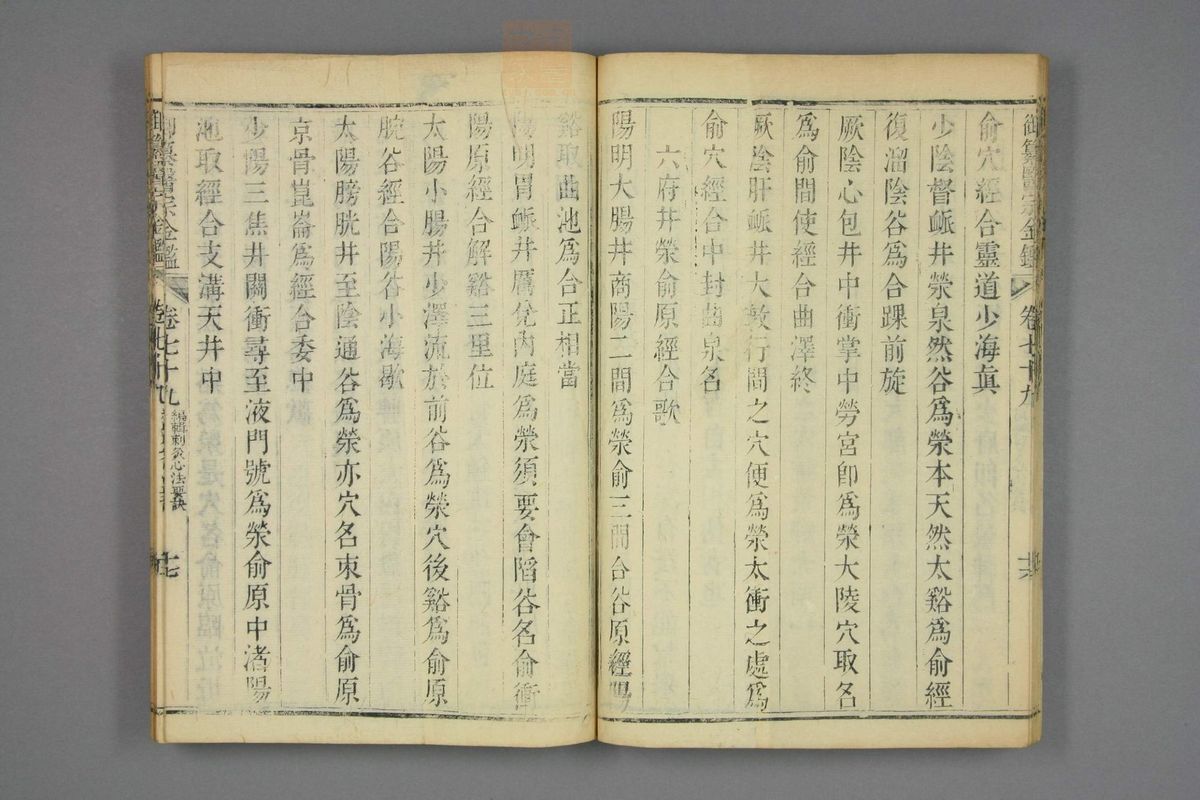 御纂醫宗金鑑 卷七十九
俞穴經合靈道少海眞
少陰督脈井滎泉然谷爲滎本天然太谿爲俞經
復溜陰谷爲合踝前旋
厥陰心包井中衝掌中勞宮卽爲滎大陵穴取名
爲俞間使經合曲澤終
厥陰肝脈井大敦行間之穴便爲滎太衝之處爲
俞穴經合中封曲泉名
六府井滎俞原經合歌
陽明大腸井商陽二間爲滎俞三間合谷原經陽
谿取曲池爲合正相當
陽明胃脈井厲兌內庭爲滎須要會陷谷名俞衝
陽原經合解谿三里位
太陽小腸井少澤流於前谷爲滎穴後谿爲俞原
腕谷經合陽谷小海歇
太陽膀胱井至陰通谷爲滎亦穴名束骨爲俞原
京骨崑崙爲經合委中
少陽三焦井關衝尋至液門號爲滎俞原中渚陽
池取經合支溝天井中
御纂醫宗金鑑 卷七十九 編輯刺灸心法要訣 十七